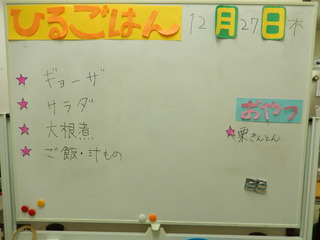 ひるごはん 12月27日 木
ギョーザ
サラダ
大根煮
ご飯・汁もの
おやつ
栗きんとん